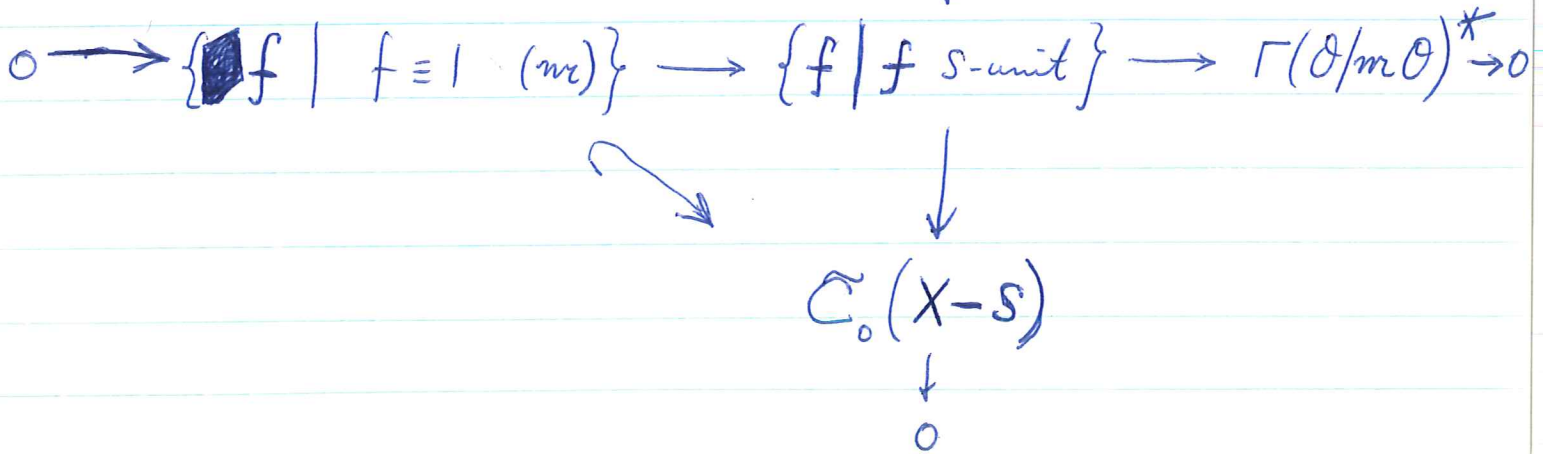 0 → {f | f ≡ 1 (m)} → {f | f S-unit} → Γ(O/mO)* → 0
↓
C̃₀(X-S)
↓
0